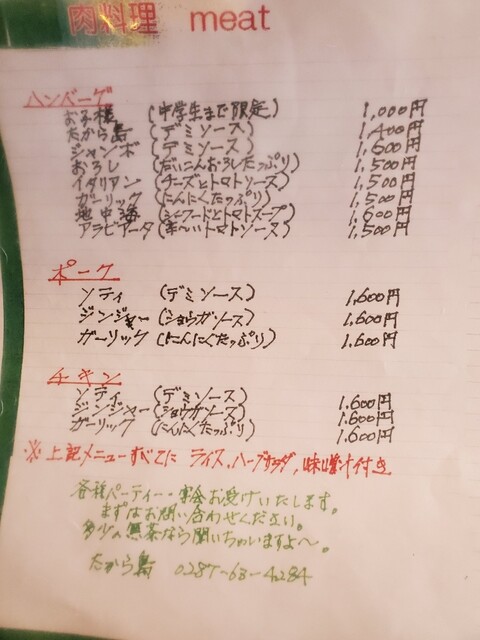 肉料理 meat
ハンバーグ
お子様 (中学生まで限定) 1,000円
たから島 (デミソース) 1,400円
ジャンボ (デミソース) 1,600円
おろし (だいこんおろしたっぷり) 1,500円
イタリアン (チーズとトマトソース) 1,500円
ガーリック (にんにくたっぷり) 1,500円
地中海 (シーフードとトマトスープ) 1,600円
アラビアータ (辛〜いトマトソース) 1,500円
ポーク
ソティ (デミソース) 1,600円
ジンジャー (ショウガソース) 1,600円
ガーリック (にんにくたっぷり) 1,600円
チキン
ソティ (デミソース) 1,600円
ジンジャー (ショウガソース) 1,600円
ガーリック (にんにくたっぷり) 1,600円
※上記メニューすべてに ライス,ハーブサラダ,味噌汁付き
各種パーティー・宴会お受けいたします。
まずはお問い合わせください。
多少の無茶なら聞いちゃいますよ〜。
たから島 0287-63-4284